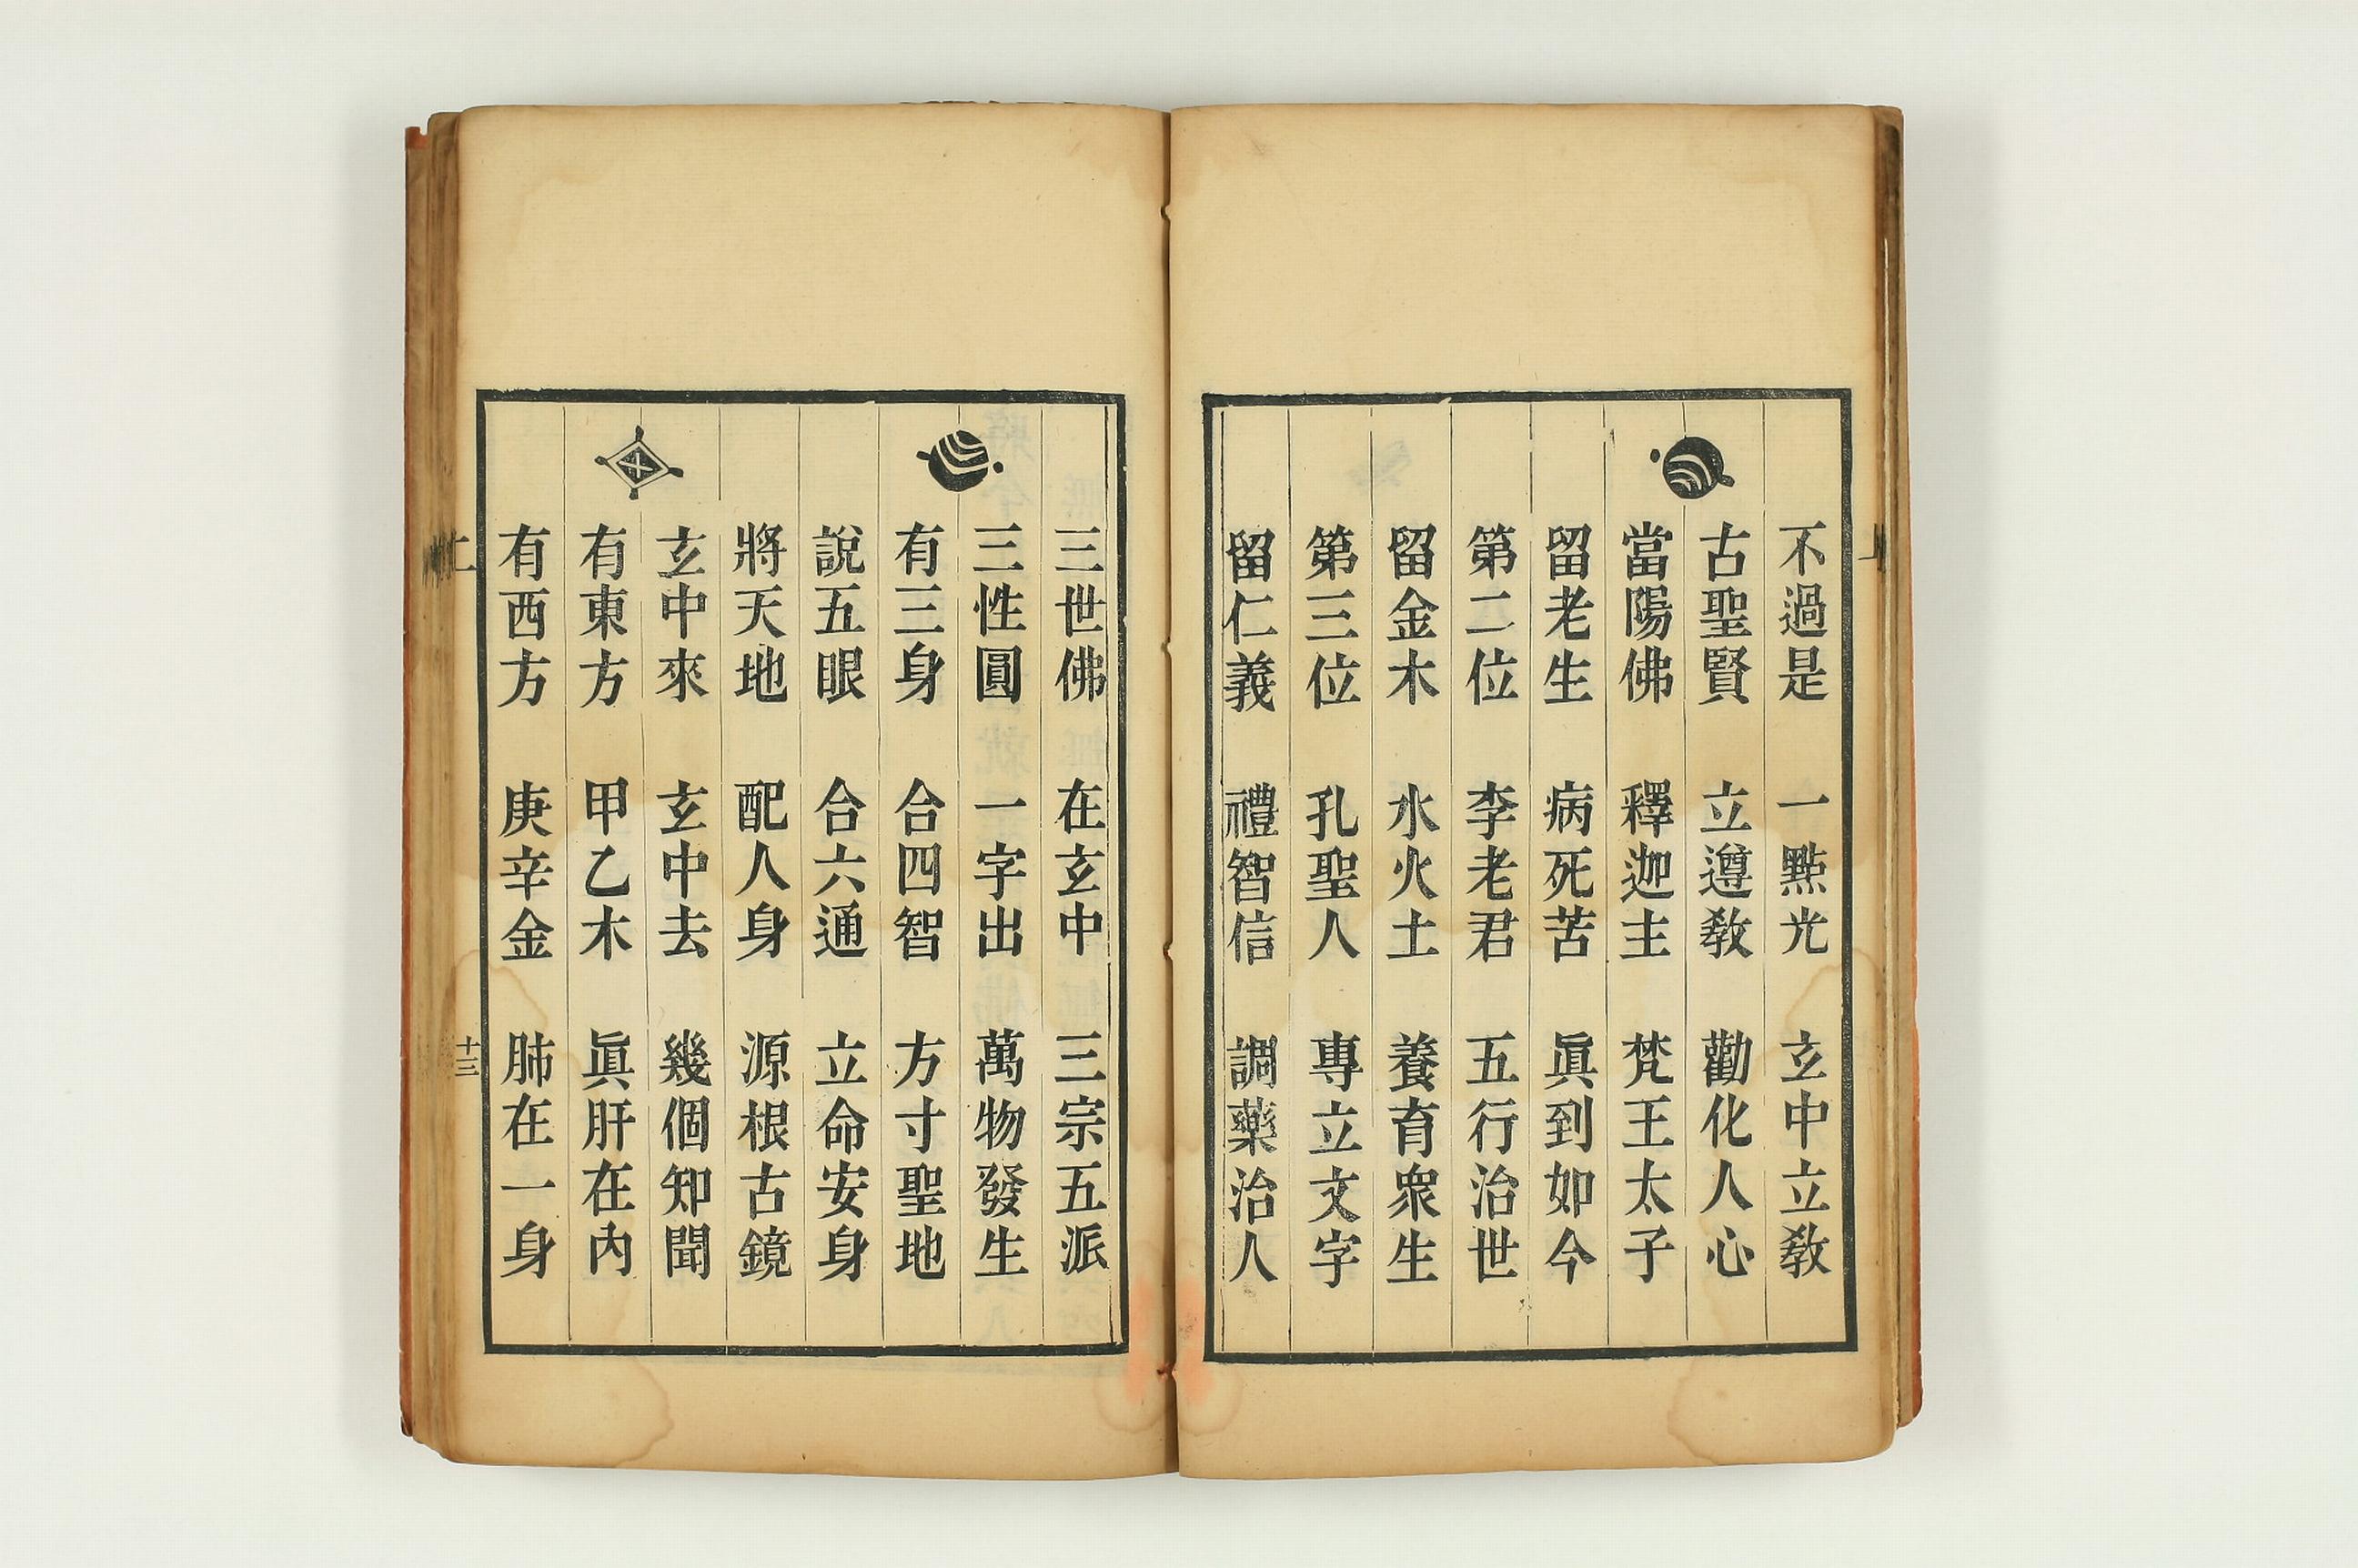 不過是 一點光 玄中立教
古聖賢 立遵教 勸化人心
當陽佛 釋迦主 梵王太子
留老生 病死苦 眞到如今
第二位 李老君 五行治世
留金木 水火土 養育衆生
第三位 孔聖人 專立文字
留仁義 禮智信 調藥治人
三世佛 在玄中 三宗五派
三性圓 一字出 萬物發生
有三身 合四智 方寸聖地
說五眼 合六通 立命安身
將天地 配人身 源根古鏡
玄中來 玄中去 幾個知聞
有東方 甲乙木 眞肝在內
有西方 庚辛金 肺在一身
十三